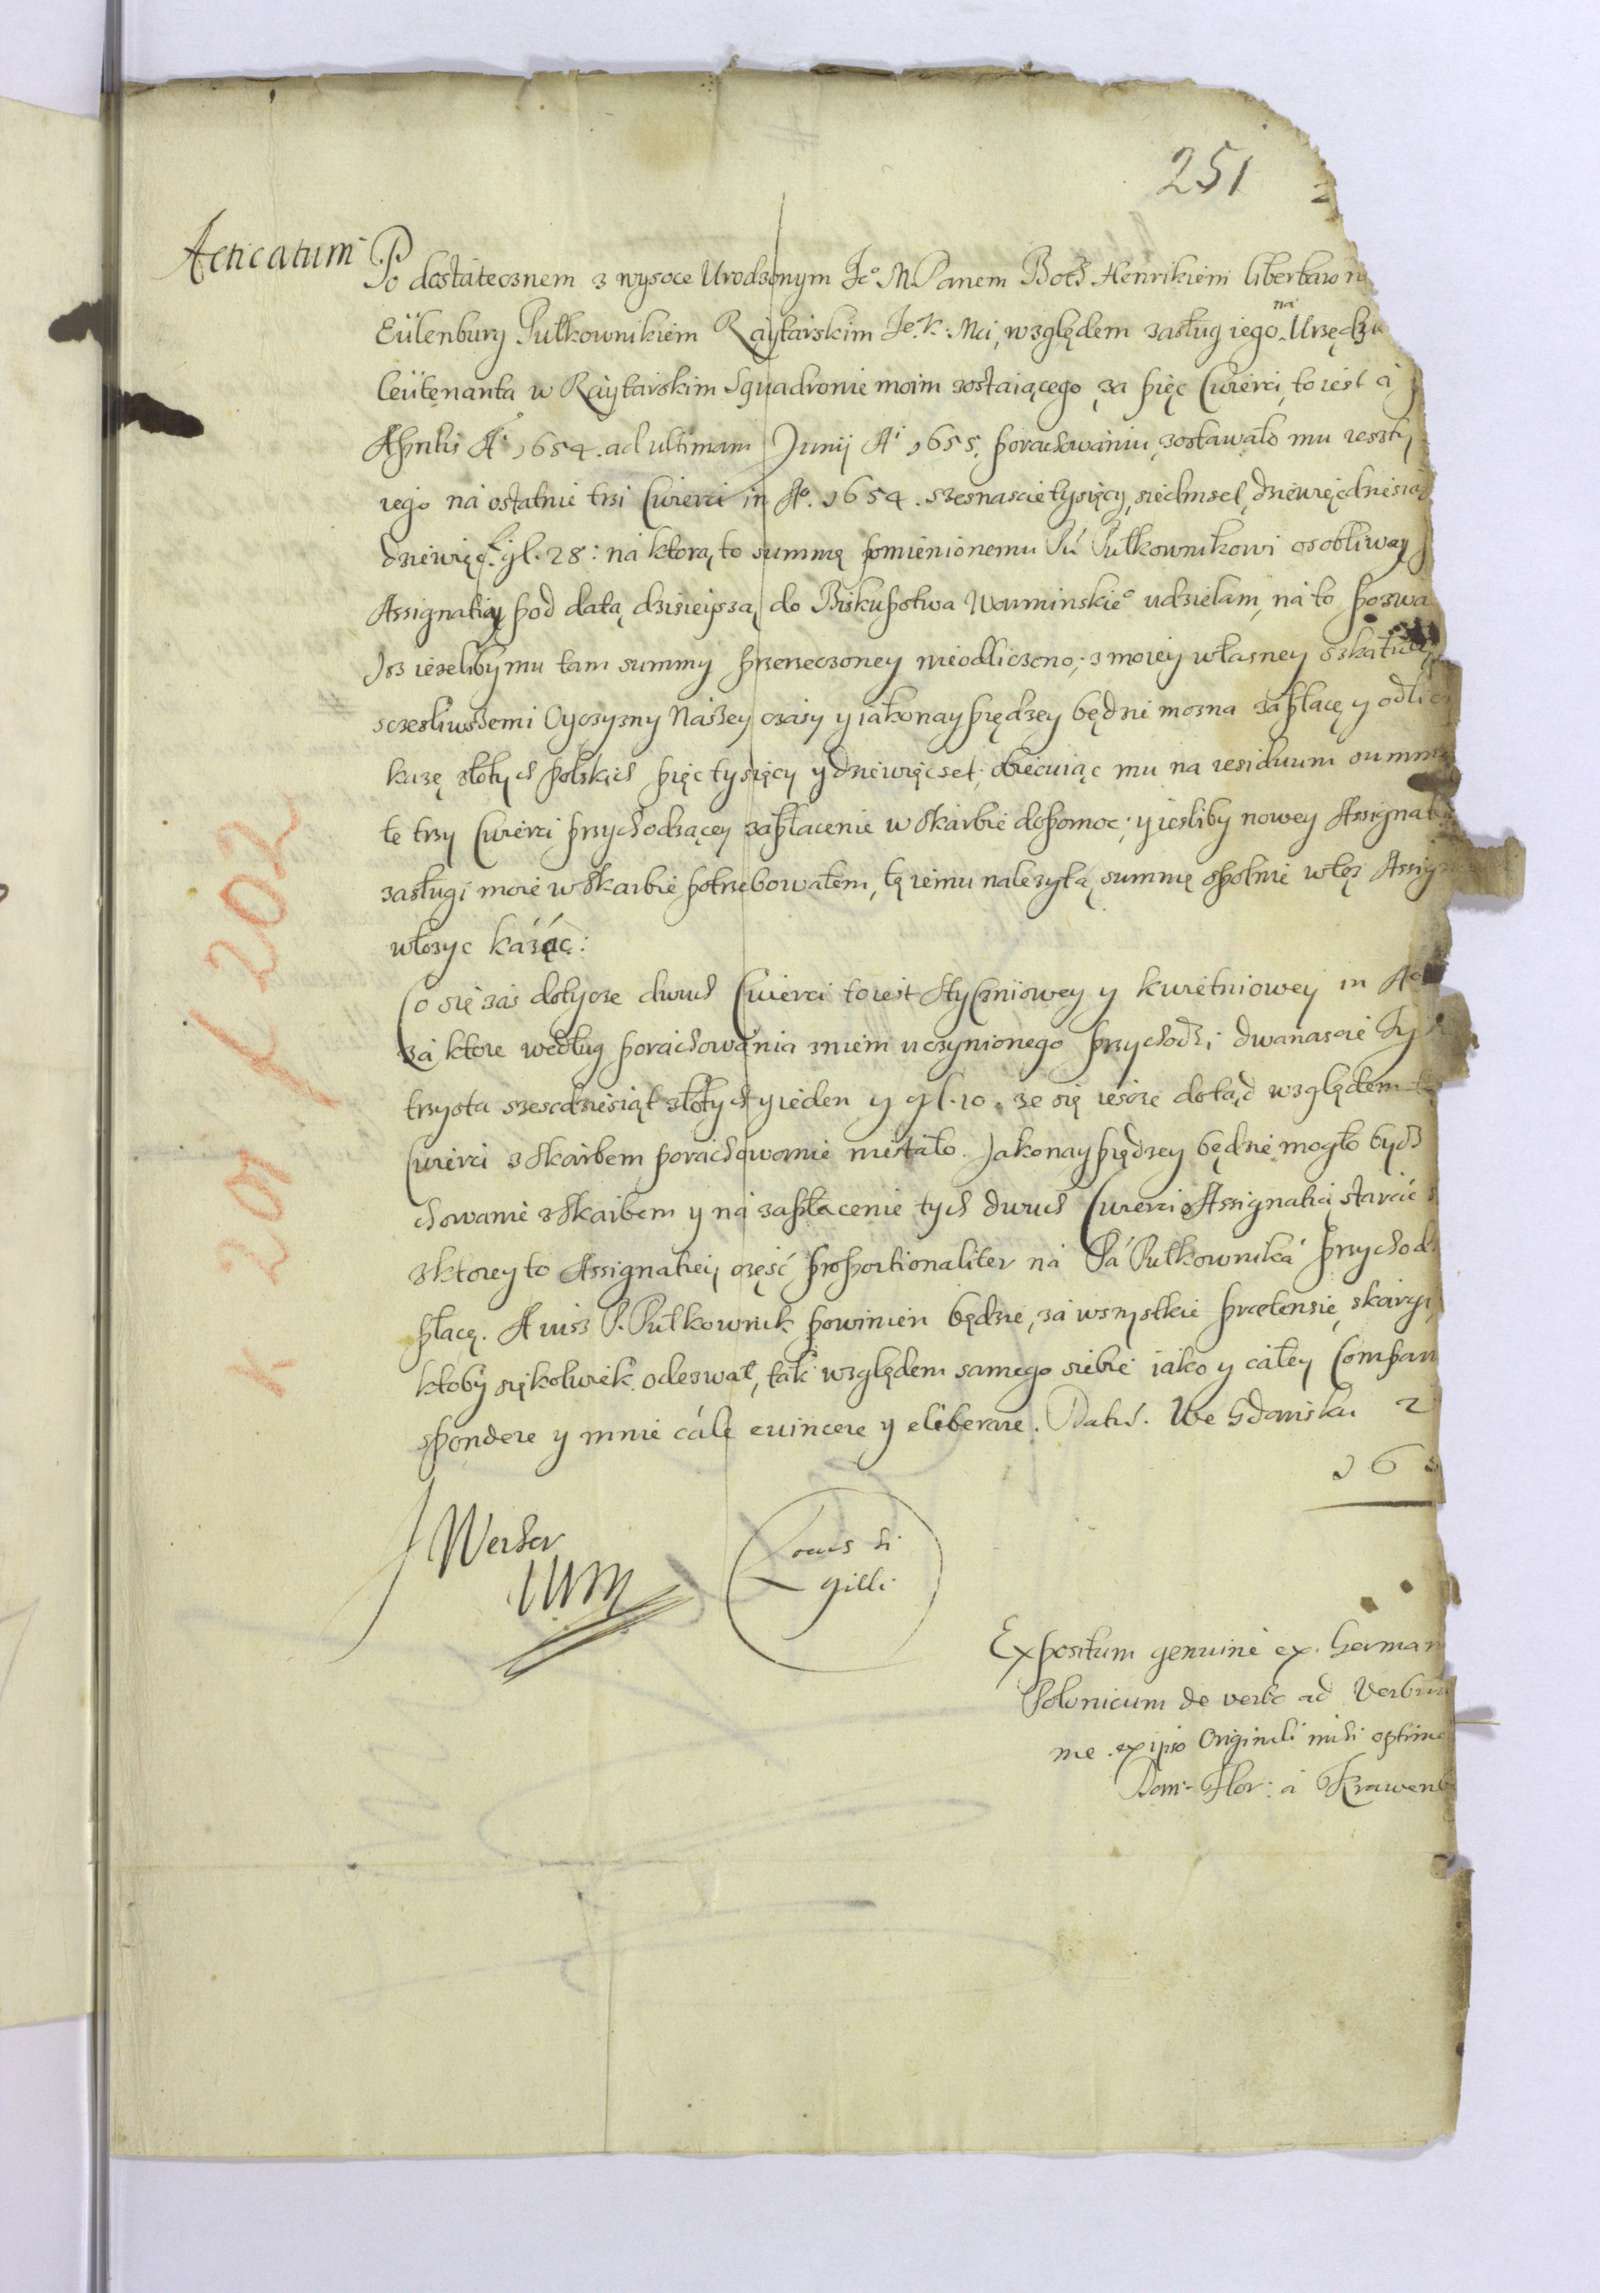 251
Acticatum
Po dostátecznem z wysoce Urodzonym Je° M Panem Both Henrikiem libertaw
Eülenburg Pułkownikiem Raytarskim Je. K. Mci, względem zasług iego na Urzędzie
leütenanta w Raytarskim Squadronie moim zostaiącego, za pięc Cwierci, to iest á
Aprilis A° 1654. ad ultimam Junij Ai 1655, porachowaniu, zostawało mu reszty
iego ná ostatnie trzi Cwierci in A°. 1654. szesnascie tysięcy, siedmset, dziewięcdziesiąt
dziewięc f. gl. 28: ná ktorą to summę pomienionemu Pú Pułkownikowi osobliwą
Assignatią pod datą dzisieyszą do Biskupstwa Warminskie° udzielam, ná to
Isz iezeliby mu tam summy przerzeczoney nieodliczono; z moiey własney szkatuły
sczesliwszemi Oyczyzny Nászey czásy y iákonayprędzey będzie mozna zápłacę y
kázę złotych polskich pięc tysięcy y dziewięcset, obiecuiąc mu na residuum summy
te trzy Cwierci przychodzącey zápłacenie w Skárbie dopomoc; y iesliby nowey
zasługi moie w Skarbie potrzebowałem, tę iemu nalezytą summę społnie w tęz
włozyc kázác:
Co się zás dotycze dwuch Cwierci to iest Styczniowey y kwietniowey in A°
Zá ktore według porachowánia z niem uczynionego przychodzi dwanascie
trzysta szescdziesiąt złotych y ieden y gl. 10. ze się iescze dotąd względem
Cwierci z Skárbem porachowanie niestáło. Jakonayprędzey będzie mogło bydz
chowanie z Skárbem y ná zapłacenie tych dwuch Cwierci Assignatiei starác
z ktorey to Assignatiey częsc proportionaliter ná Pá Pułkowniká
płacę. A iusz P. Pułkownik powinien będzie, zá wszystkie praetensie, skargi,
ktoby siękolwiek odezwał, ták względem samego siebie iáko y całey
spondere y mnie cále evincere y eliberare. Dat. We Gdańsku 2
Locus Si
gilli
Expositum genuine ex.
Polonicum de verbo ad
me. ex ipso Originali mihi
Dan. Flor: á
k 201 f 202